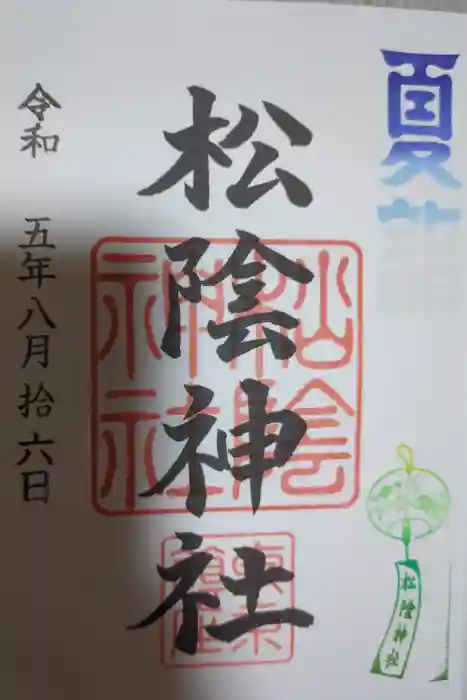 夏詣
松陰神社
令和 五年八月拾六日
松陰神社
松陰神社